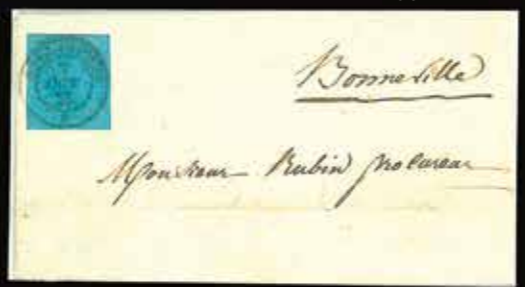 Bonneville
Monsieur Rubin procureur